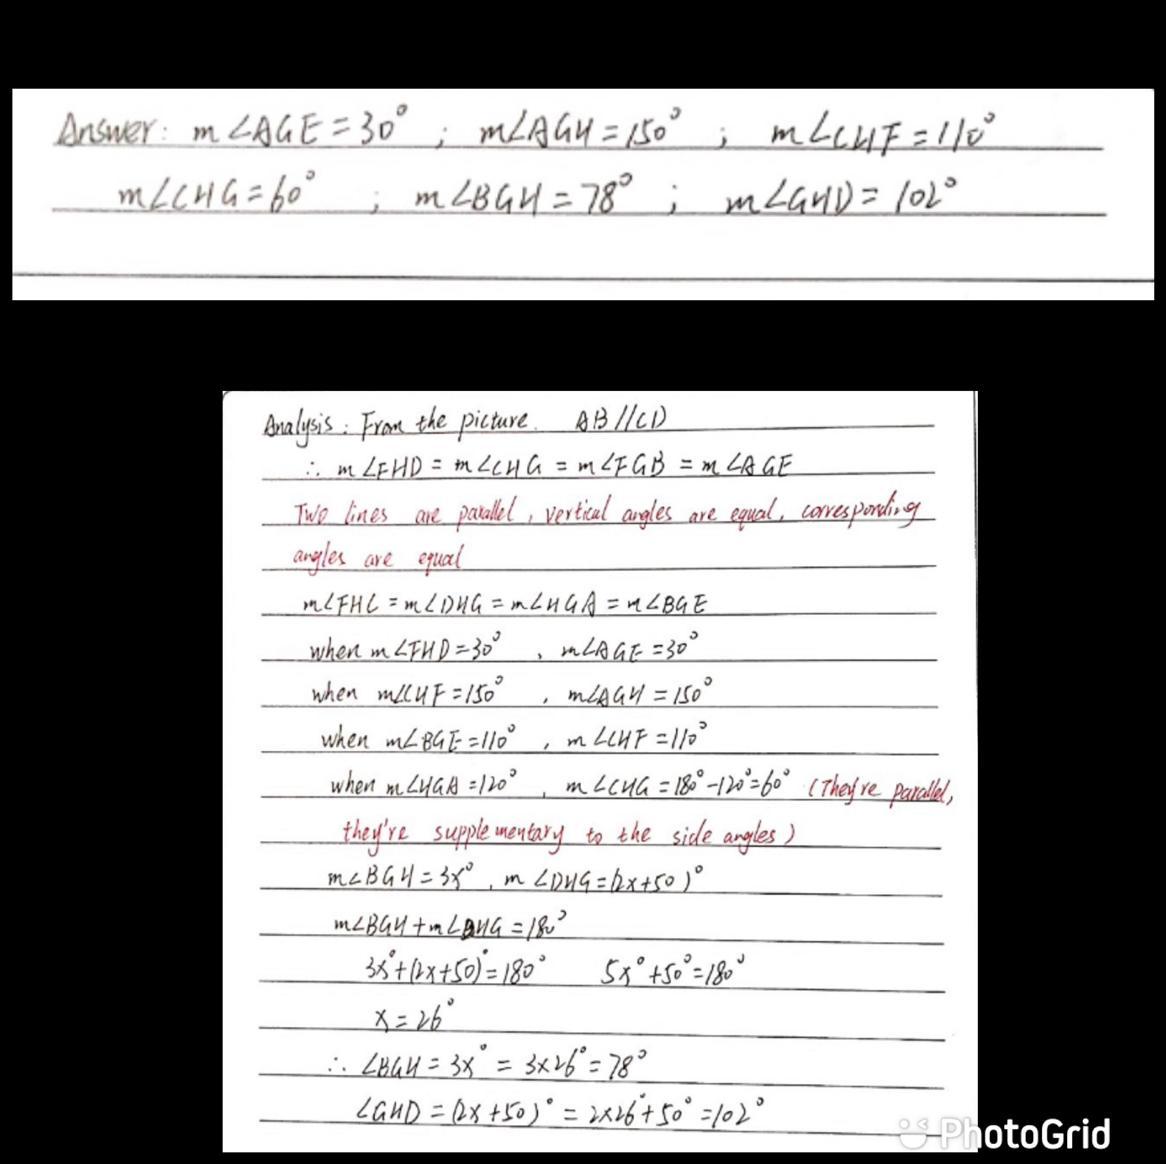 Answer: m∠AGE=30° ; m∠AGH=150° ; m∠CHF=110°
m∠CHG=60° ; m∠BGH=78° ; m∠GHD=102°
Analysis: From the picture. AB//CD
∴ m∠FHD = m∠CHG = m∠FGB = m∠AGE
Two lines are parallel, vertical angles are equal, corresponding
angles are equal
m∠FHC = m∠DHG = m∠HGA = m∠BGE
when m∠FHD=30° , m∠AGE=30°
when m∠CHF=150° , m∠AGH=150°
when m∠BGE=110° , m∠CHF=110°
when m∠HGA=120° , m∠CHG=180°-120°=60° (They're parallel,
they're supplementary to the side angles)
m∠BGH=3x° , m∠DHG=(2x+50)°
m∠BGH+m∠DHG=180°
3x°+(2x+50)°=180° 5x°+50°=180°
x=26°
∴ ∠BGH=3x°=3×26°=78°
∠GHD=(2x+50)°=2×26°+50°=102°
PhotoGrid